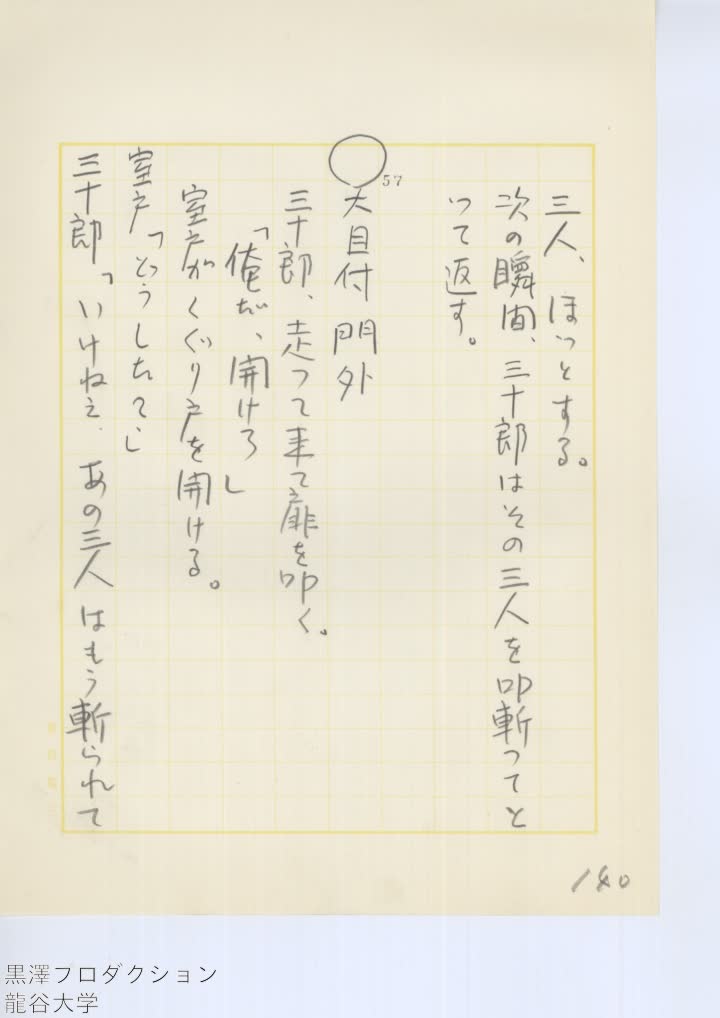 三人、ほっとする。
次の瞬間、三十郎はその三人を叩斬ってと
って返す。
57
大目付門外
三十郎、走って来て扉を叩く。
「俺だ、開けろ」
室戸がくぐり戸を開ける。
室戸「どうした？」
三十郎「いけねえ、あの三人はもう斬られて
140
黒澤プロダクション
龍谷大学